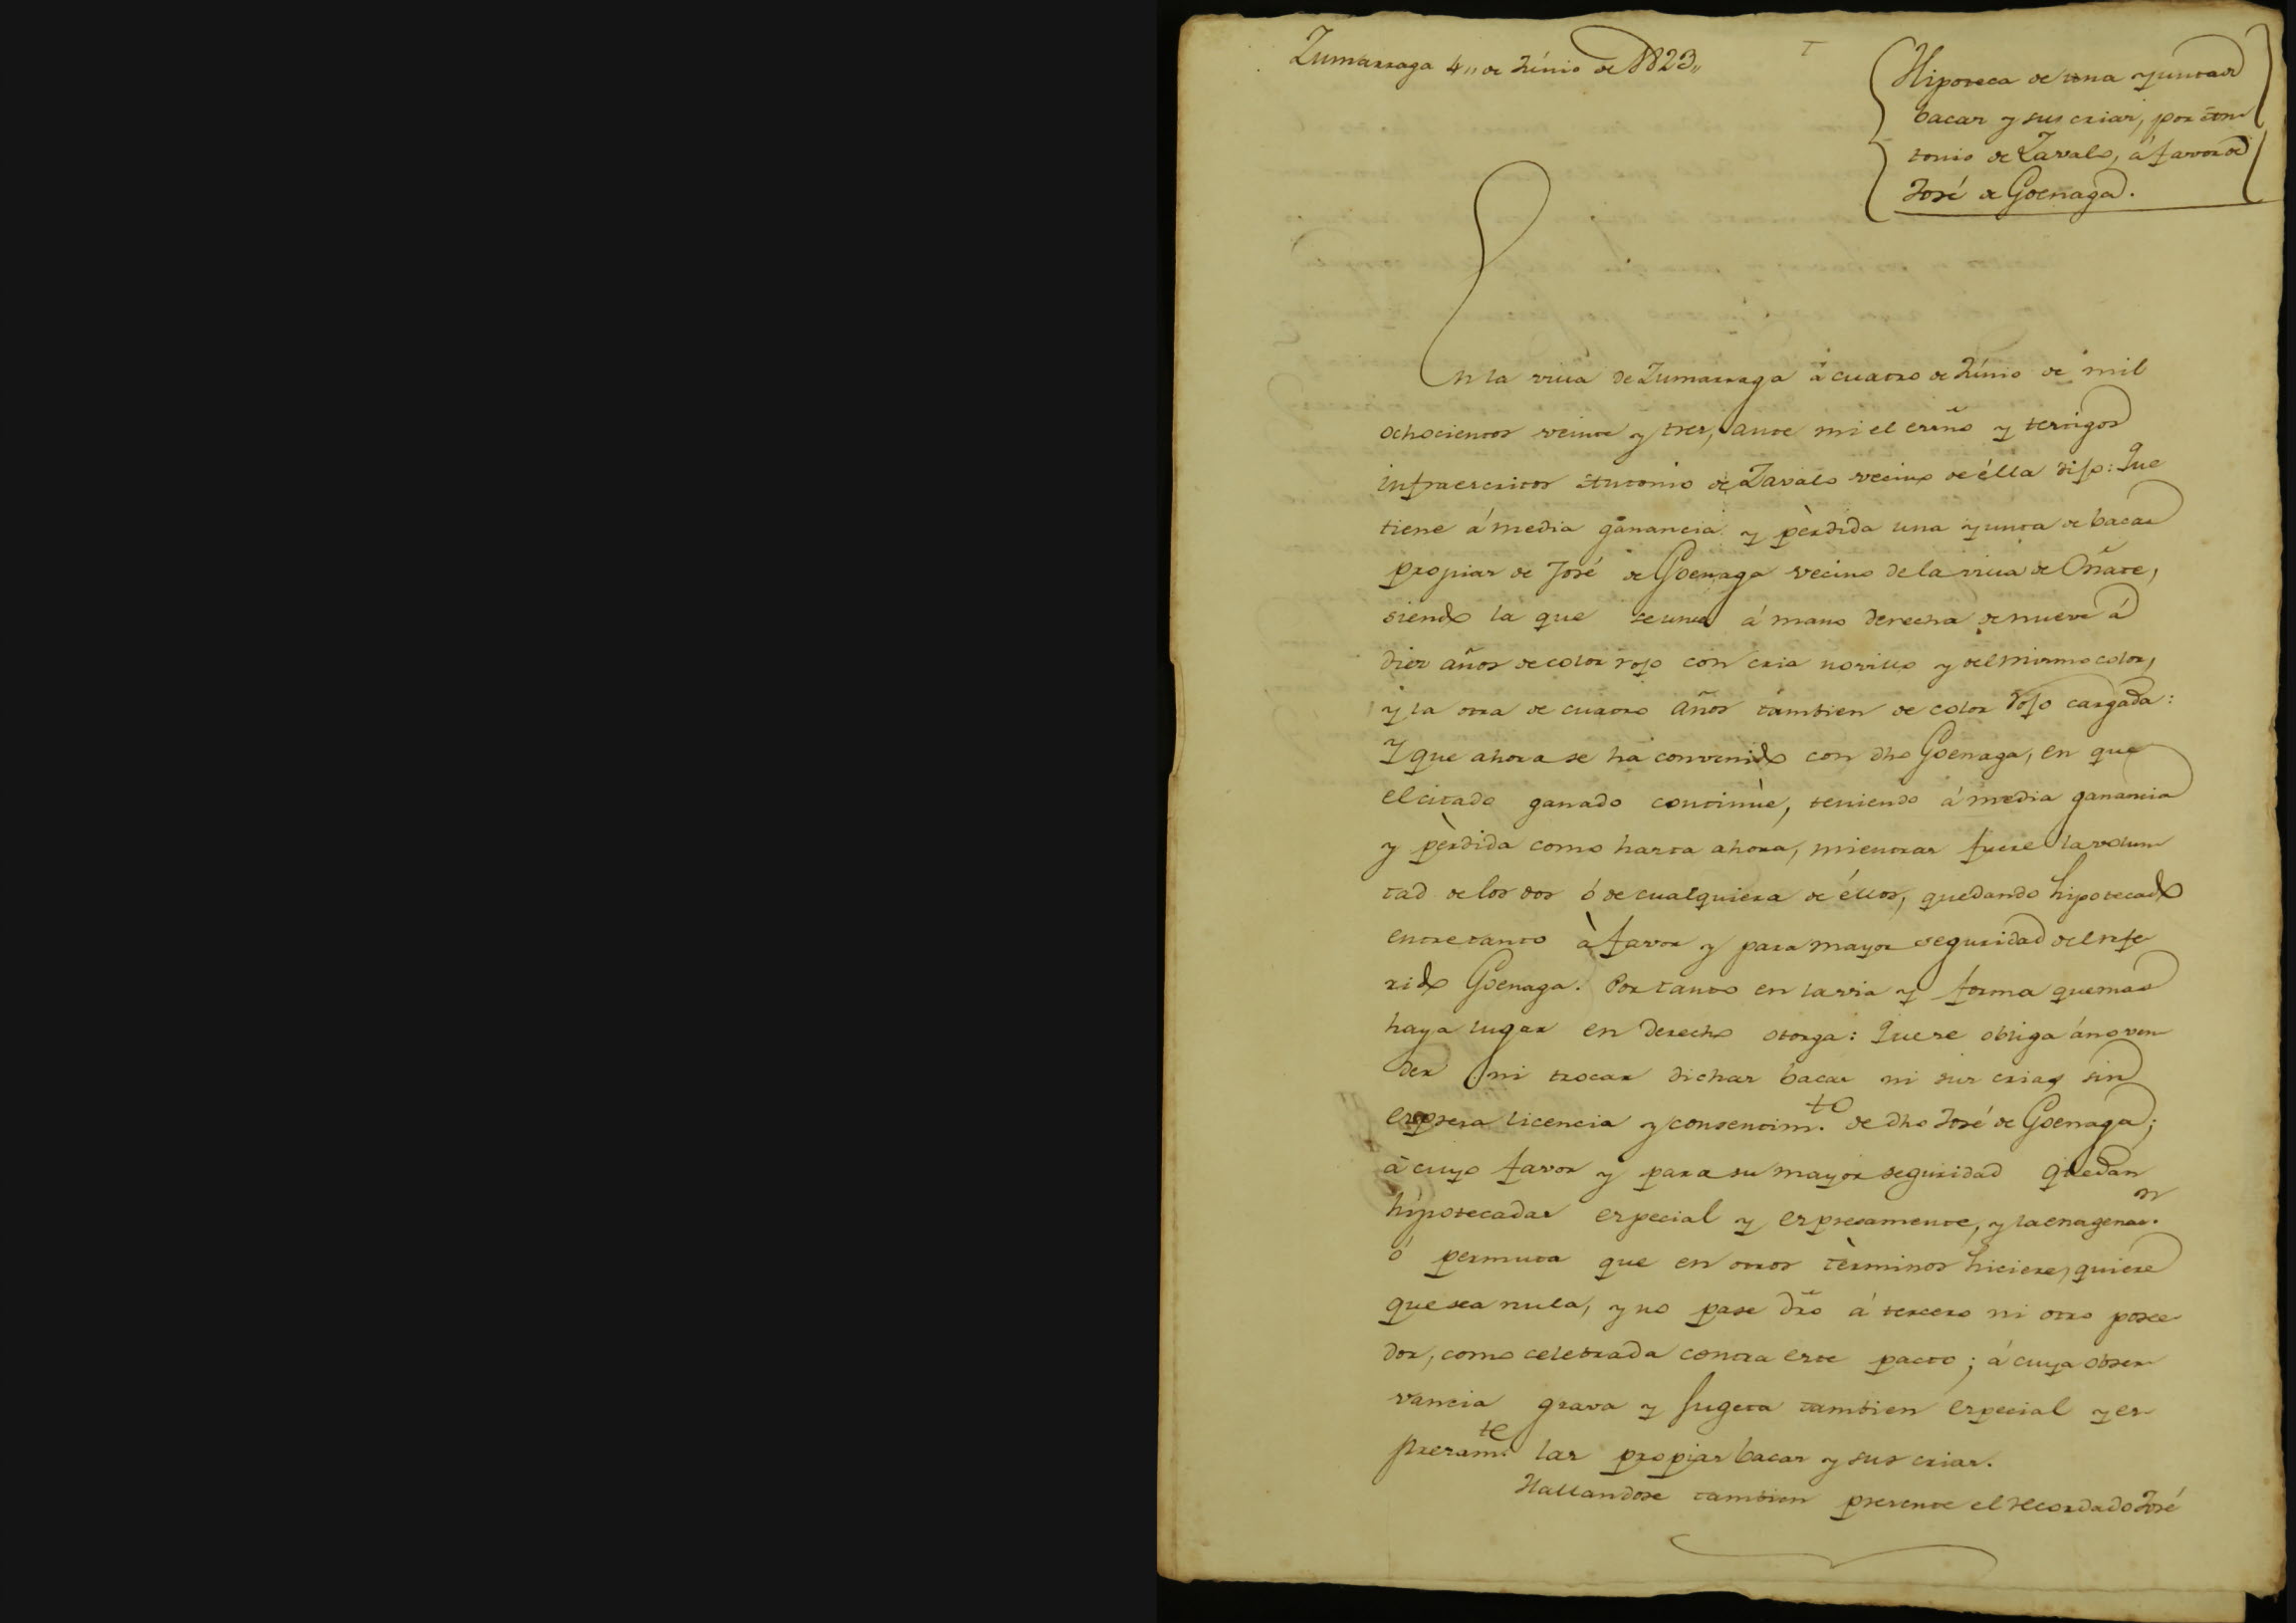 Zumarraga 4,, de Júnio de 1823,,
Hipoteca de una yunta de
bacas y sus crias, por An-
tonio de Zavalo, á favor de
José de Goenaga.
En la villa de Zumarraga á cuatro de Júnio de mil
ochocientos veinte y tres, ante mi el esc̃no y testigos
infraescritos Antonio de Zavalo vecino de élla dijo: Que
tiene á media ganancia y pèrdida una yunta de bacas
propias de José de Goenaga vecino de la villa de Oñate,
siendo la que se unce á mano derecha de nueve á
diez años de color rojo con cria novillo y del mismo color,
y la otra de cuatro años tambien de color rojo cargada:
Y que ahora se ha convenido con dho Goenaga, en que
el citado ganado continùe, teniendo á media ganancia
y pèrdida como hasta ahora, mientras fuere la volun-
tad de los dos ó de cualquiera de éllos, quedando hipotecado
entretanto à favor y para mayor seguridad del refe-
rido Goenaga. Por tanto en la via y forma que mas
haya lugar en derecho otorga: Que se obliga á no ven-
der ni trocar dichas bacas ni sus crias sin
espresa licencia y consentim.to de dho José de Goenaga;
á cuyo favor y para su mayor seguridad quedan
hipotecadas especial y espresamente, y la enagenac.n
ó permuta que en otros tèrminos hiciere, quiere
que sea nula, y no pase dr̃o á tercero ni otro posee-
dor, como celebrada contra este pacto; á cuya obser-
vancia grava y sugeta tambien especial y es-
presam.te las propias bacas y sus crias.
Hallandose tambien presente el recordado José